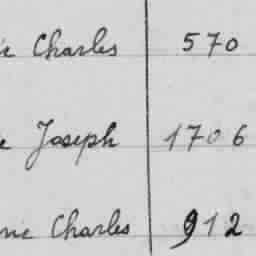 Charles 570
Joseph 1706
Charles 912